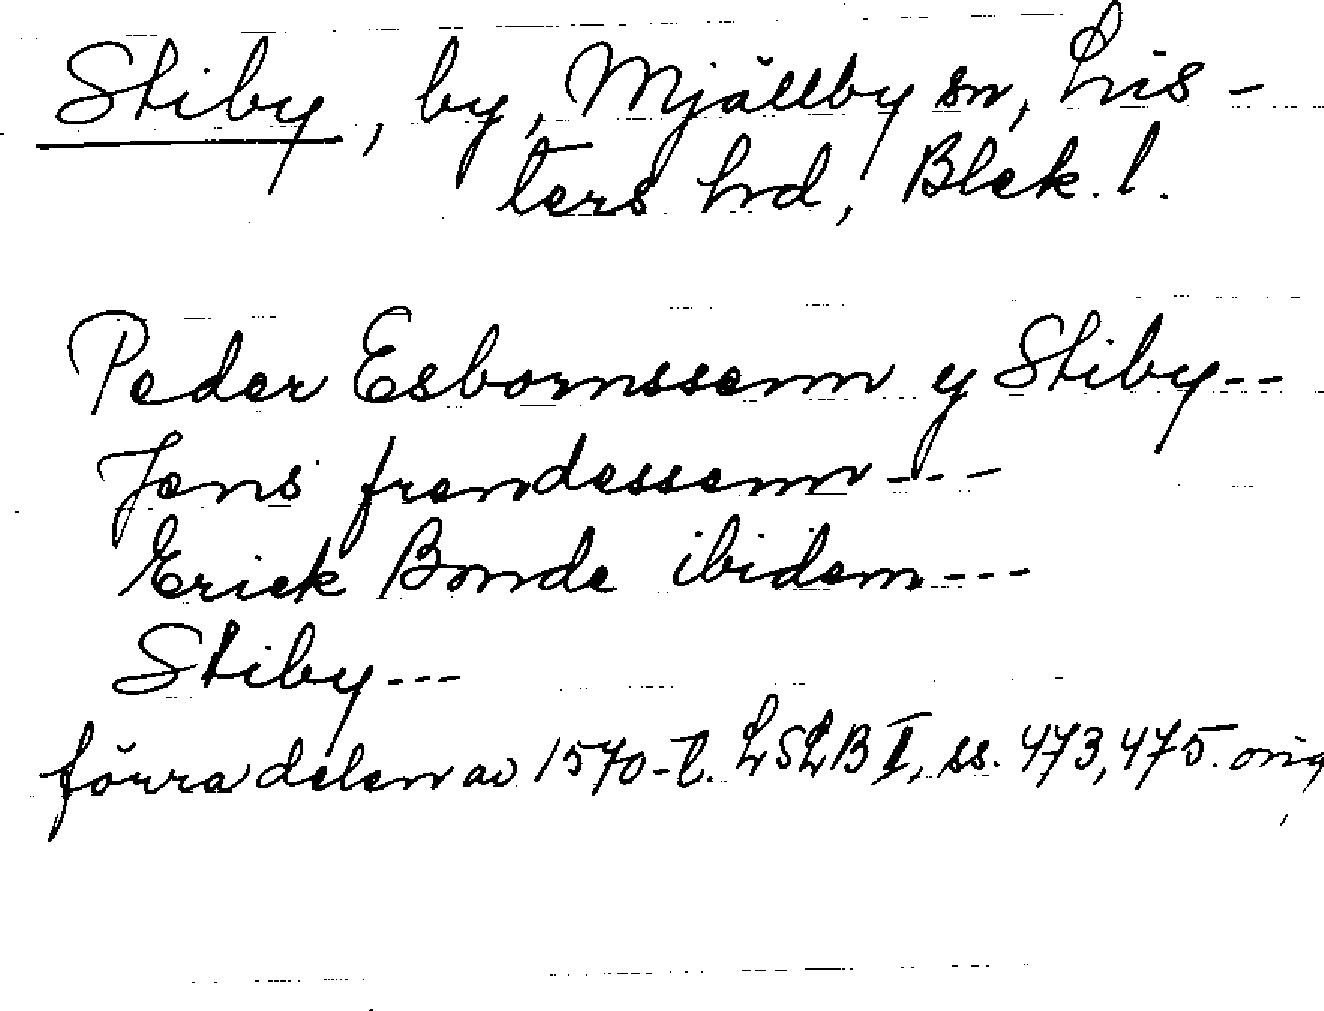 Stiby, by, Mjällby sn, Lis-
ters hd, Blek. l.
Peder Esbornssenn y Stiby--
Jens frendessenn---
Erick Bonde ibidem---
Stiby---
förra delen av 1570-t. LSLB I, ss. 473, 475. orig